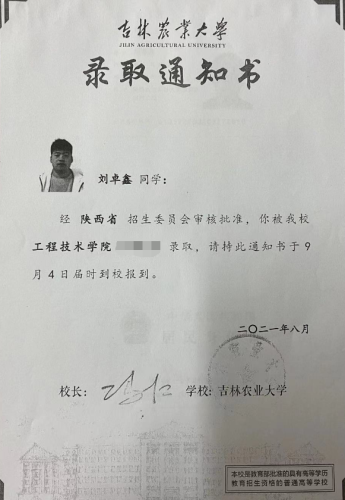 吉林农业大学
JILIN AGRICULTURAL UNIVERSITY
录取通知书
刘卓鑫 同学：
经 陕西省 招生委员会审核批准，你被我校
工程技术学院 录取，请持此通知书于9
月4日届时到校报到。
二〇二一年八月
校长： 学校：吉林农业大学
本校是教育部批准的具有高等学历
教育招生资格的普通高等学校